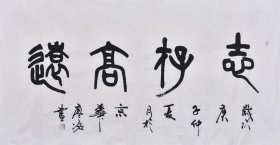 志存高遠
歲次庚子仲夏月於京華
書